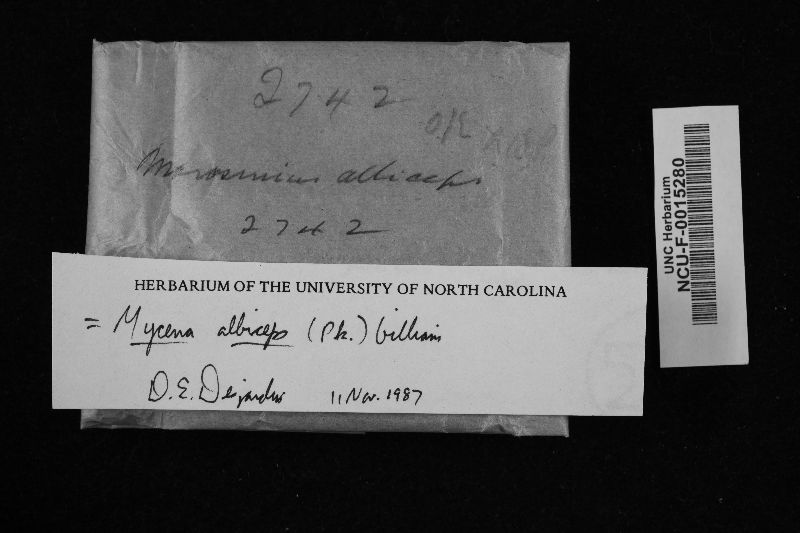 2742
O/E
Marasmius albiceps
2742
HERBARIUM OF THE UNIVERSITY OF NORTH CAROLINA
= Mycena albiceps (Pk.) Gilliam
D. E. Desjardin 11 Nov. 1987
UNC Herbarium
NCU-F-0015280